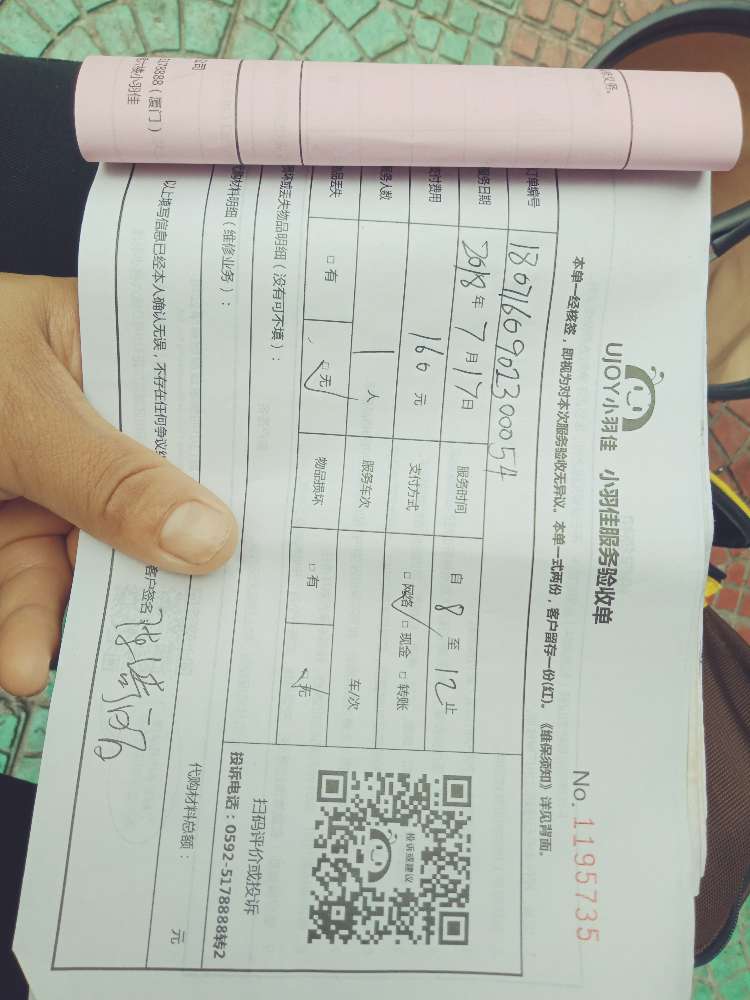 UJOY小羽佳 小羽佳服务验收单
No. 1195735
本单一经核签，即视为对本次服务验收无异议。本单一式两份，客户留存一份(红)。《维保须知》详见背面。
订单编号 1807160902300054
服务日期 2018年7月17日 服务时间 自8至12止
支付费用 160元 支付方式 □网络 □现金 □转账
务人数 1人 服务车次 车/次
品丢失 □有 □无 物品损坏 □有 □无
投诉或建议
扫码评价或投诉
投诉电话：0592-5178888转2
损坏或丢失物品明细（没有可不填）：
代购材料明细（维修业务）：
代购材料总额： 元
以上填写信息已经本人确认无误，不存在任何争议
客户签名：
公司
5178888（厦门）
小羽佳